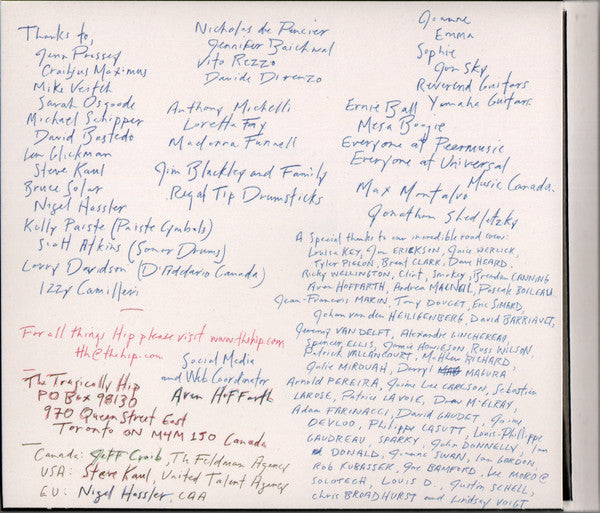 Thanks to,
Jenn Pressey
Craiglus Maximus
Mike Veitch
Sarah Osgoode
Michael Schipper
David Bastedo
Len Glickman
Steve Kaul
Bruce Solar
Nigel Hassler
Kelly Paiste (Paiste Cymbals)
Scott Atkins (Sonor Drums)
Larry Davidson (D'Addario Canada)
Izzy Camilleri
Nicholas de Pencier
Jennifer Baichwal
Vito Rezzo
Davide Direnzo
Anthony Michelli
Loretta Fay
Madonna Funnell
Jim Blackley and Family
Regal Tip Drumsticks
Joanne
Emma
Sophie
Jon Sky
Reverend Guitars
Yamaha Guitars
Ernie Ball
Mesa Boogie
Everyone at Peermusic
Everyone at Universal
Music Canada
Max Montalvo
Jonathan Shedletzky
A Special thanks to our incredible road crew:
Louisa KEY, Jon ERICKSON, Josie WERLICK,
Tyler PIGEON, Brent CLARK, Dave HEARD,
Ricky WELLINGTON, Clint, Smokey, Brendan CANNING
Aven HOFFARTH, Andrea MAGNEL, Pascale BOILEAU
Jean-Francois MARIN, Tony DOUCET, Eric SIMARD,
Johan vanden HEILIGENBERG, David BARRIAULT,
Jeremy VAN DELFT, Alexandre LINCHEREAU,
Spencer ELLIS, Jamie HOWIESON, Ross WILSON,
Patrick VALLANCOURT, Matthew RICHARD,
Julie MIROUAH, Darryl MAGURA
Arnold PEREIRA, Jaime Lee CARLSON, Sebastien
LAROSE, Patrice LAVOIE, Drew McELRAY,
Adam FARINACCI, David GAUDET, Jaimy
DEVLOO, Philippe CASUTT, Louis-Phillippe
GAUDREAU, SPARKY, John DONNELLY, Ian
DONALD, Joanne SWAN, Ian GORDON,
Rob KUBASSEK, Joe BAMFORD, Lee MORO @
SOLOTECH, LOUIS D., Justin SCHELL,
Chris BROADHURST and Lindsay VOIGT
For all things Hip please visit www.thehip.com
tth@thehip.com
Social Media
and Web Coordinator
Aven HOFFarth
The Tragically Hip
PO Box 98130
970 Queen Street East
Toronto ON M4M 1J0 Canada
Canada: Jeff Craib, The Feldman Agency
USA: Steve Kaul, United Talent Agency
EU: Nigel Hassler, CAA